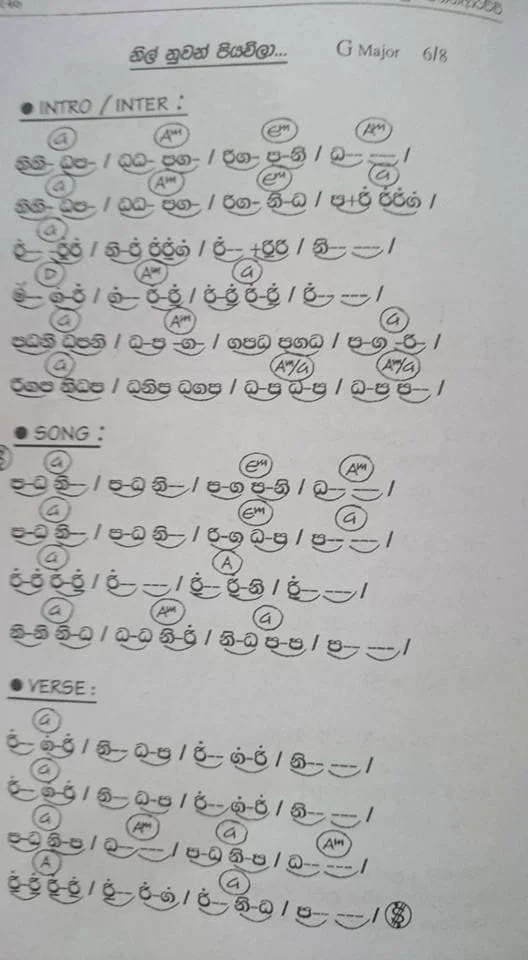 නිල් නුවන් පියවිලා... G Major 6/8
● INTRO / INTER :
G Am Em Am
නිනි- ධප- / ධධ- පග- / රිග- ප-නි / ධ-- --- /
G Am Em G
නිනි- ධප- / ධධ- පග- / රිග- නි-ධ / ප+රි් රි්රි්ග් /
G
D Am G
G Am G
පධනි ධපනි / ධ-ප -ග- / ගපධ පගධ / ප-ග -රි- /
G Am/G Am/G
රිගප නිධප / ධනිප ධගප / ධ-ප ධ-ප / ධ-ප ප-- /
● SONG :
G Em Am
ප-ධ නි-- / ප-ධ නි-- / ප-ග ප-නි / ධ-- --- /
G Em G
ප-ධ නි-- / ප-ධ නි-- / රි-ග ධ-ප / ප-- --- /
G A
G Am G
නි-නි නි-ධ / ධ-ධ නි-රි් / නි-ධ ප-ප / ප-- --- /
● VERSE :
G
රි්-- ග්-රි් / නි-- ධ-ප / රි්-- ග්-රි් / නි-- --- /
G
රි්-- ග්-රි් / නි-- ධ-ප / රි්-- ග්-රි් / නි-- --- /
G Am G Am
ප-ධ නි-ප / ධ-- --- / ප-ධ නි-ප / ධ-- --- /
A G